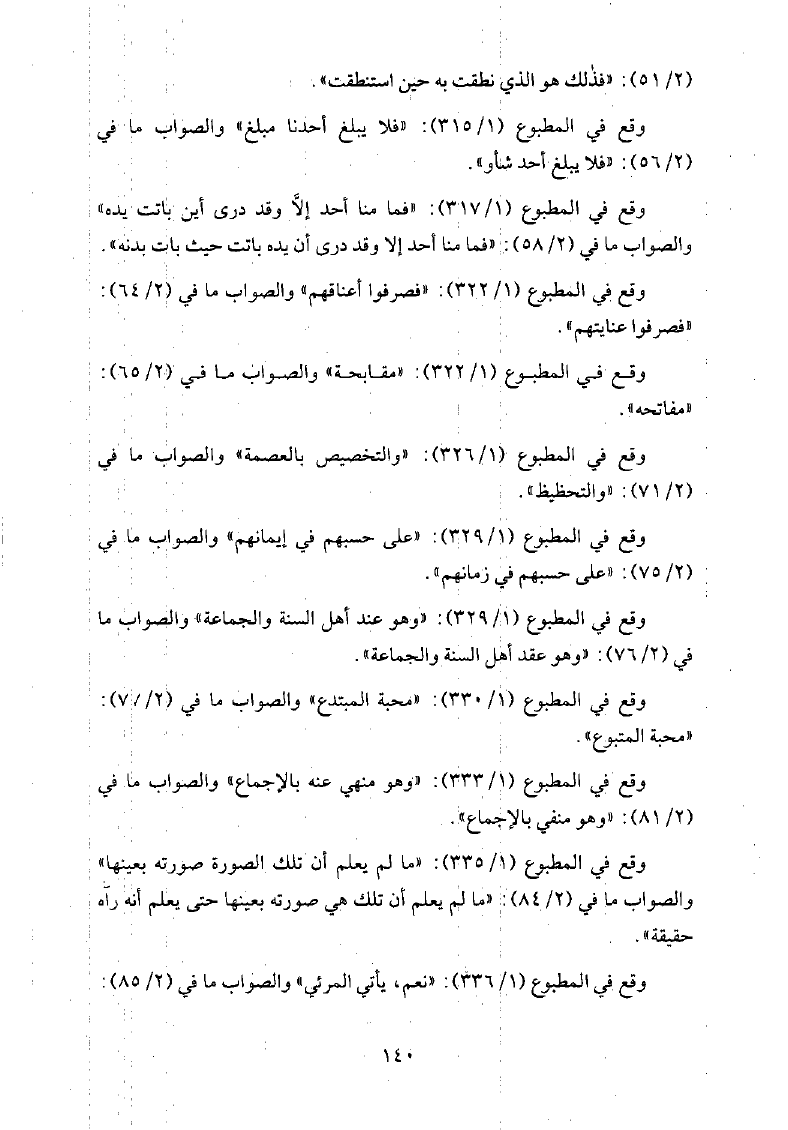 (٢/ ٥١): «فذٰلك هو الذي نطقت به حين استنطقت».
وقع في المطبوع (١/ ٣١٥): «فلا يبلغ أحدنا مبلغ» والصواب ما في
(٢/ ٥٦): «فلا يبلغ أحد شأو».
وقع في المطبوع (١/ ٣١٧): «فما منا أحد إلاَّ وقد درى أين باتت يده»
والصواب ما في (٢/ ٥٨): «فما منا أحد إلا وقد درى أن يده باتت حيث بات بدنه».
وقع في المطبوع (١/ ٣٢٢): «فصرفوا أعناقهم» والصواب ما في (٢/ ٦٤):
«فصرفوا عنايتهم».
وقع في المطبوع (١/ ٣٢٢): «مقابحة» والصواب ما في (٢/ ٦٥):
«مفاتحه».
وقع في المطبوع (١/ ٣٢٦): «والتخصيص بالعصمة» والصواب ما في
(٢/ ٧١): «والتحظيظ».
وقع في المطبوع (١/ ٣٢٩): «على حسبهم في إيمانهم» والصواب ما في
(٢/ ٧٥): «على حسبهم في زمانهم».
وقع في المطبوع (١/ ٣٢٩): «وهو عند أهل السنة والجماعة» والصواب ما
في (٢/ ٧٦): «وهو عقد أهل السنة والجماعة».
وقع في المطبوع (١/ ٣٣٠): «محبة المبتدع» والصواب ما في (٢/ ٧٧):
«محبة المتبوع».
وقع في المطبوع (١/ ٣٣٣): «وهو منهي عنه بالإجماع» والصواب ما في
(٢/ ٨١): «وهو منفي بالإجماع».
وقع في المطبوع (١/ ٣٣٥): «ما لم يعلم أن تلك الصورة صورته بعينها»
والصواب ما في (٢/ ٨٤): «ما لم يعلم أن تلك هي صورته بعينها حتى يعلم أنه رآه
حقيقة».
وقع في المطبوع (١/ ٣٣٦): «نعم، يأتي المرئي» والصواب ما في (٢/ ٨٥):
١٤٠